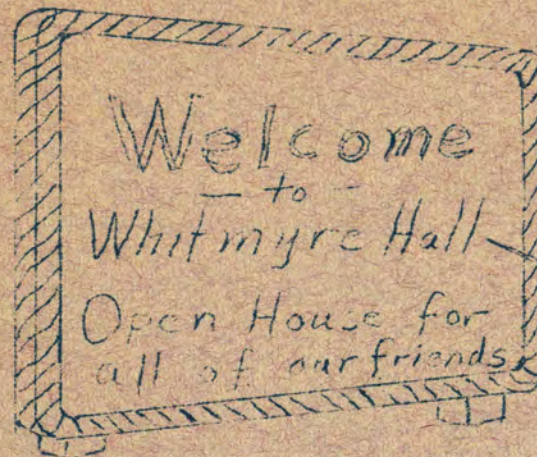 Welcome
— to -
Whitmyre Hall
Open House for
all of our friends